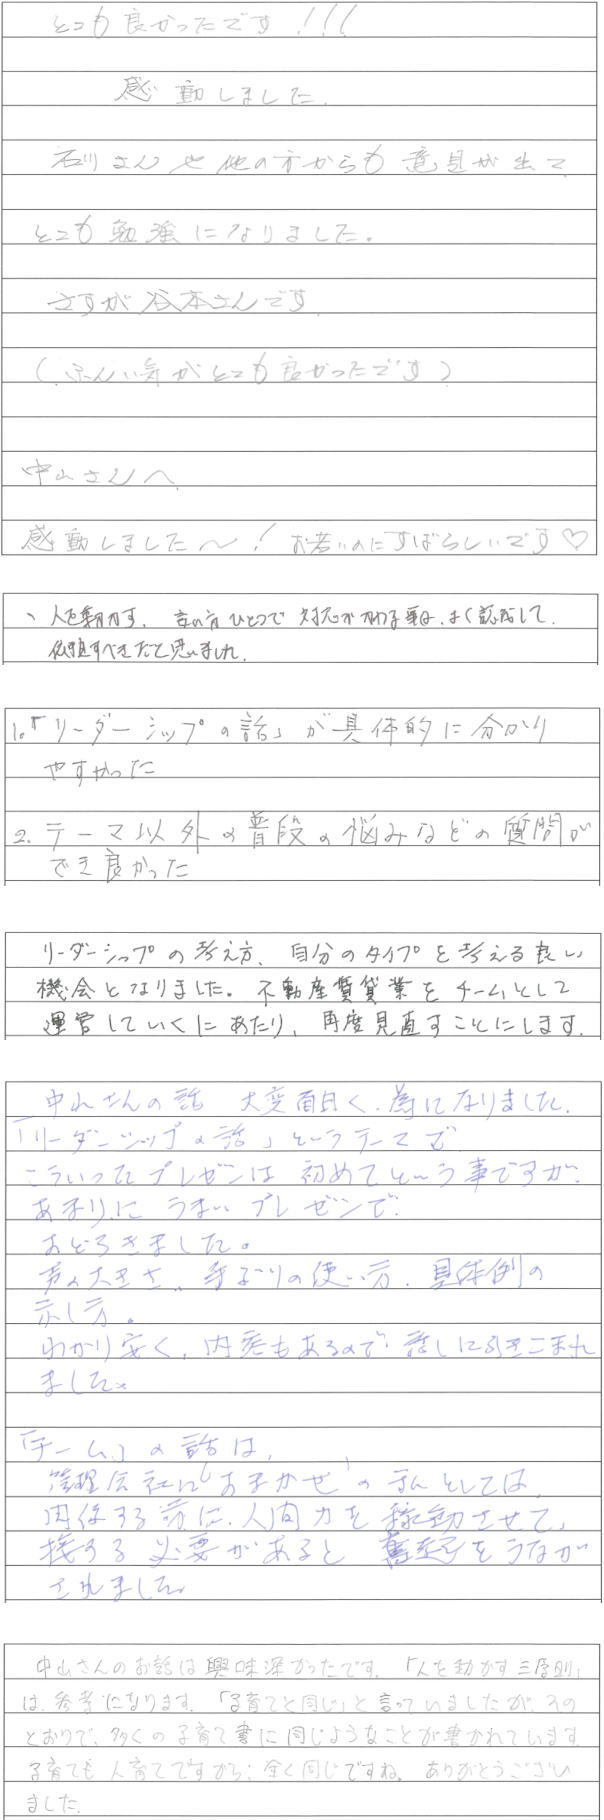 とても良かったです!!!
感動しました。
石川さんや他の方からも意見が出て、
とても勉強になりました。
さすが谷本さんです。
(ふんい気がとても良かったです)
中山さんへ
感動しました〜! お若いのにすばらしいです♡
、人を動かす、言い方ひとつで対応が変わる事は、よく認識して、
依頼すべきだと思いました。
1.「リーダーシップの話」が具体的に分かり
やすかった
2. テーマ以外の普段の悩みなどの質問が
でき良かった
リーダーシップの考え方、自分のタイプを考える良い
機会となりました。不動産賃貸業をチームとして
運営していくにあたり、再度見直すことにします。
中山さんの話 大変面白く、為になりました。
「リーダーシップの話」というテーマで
こういったプレゼンは初めてという事ですが、
あまりにうまいプレゼンで、
おどろきました。
声の大きさ、手ぶりの使い方、具体例の
示し方。
わかり安く、内容もあるので、話しに引きこまれ
ました。
「チーム」の話は、
管理会社に「おまかせ」の私としては、
関係する前に、人間力を稼動させて、
接する必要があると奮起をうなが
されました。
中山さんのお話は興味深かったです。「人を動かす三原則」
は、参考になります。「子育てと同じ」と言っていましたが、その
とおりで、多くの子育て書に同じようなことが書かれています。
子育ても人育てですから、全く同じですね。ありがとうござい
ました。